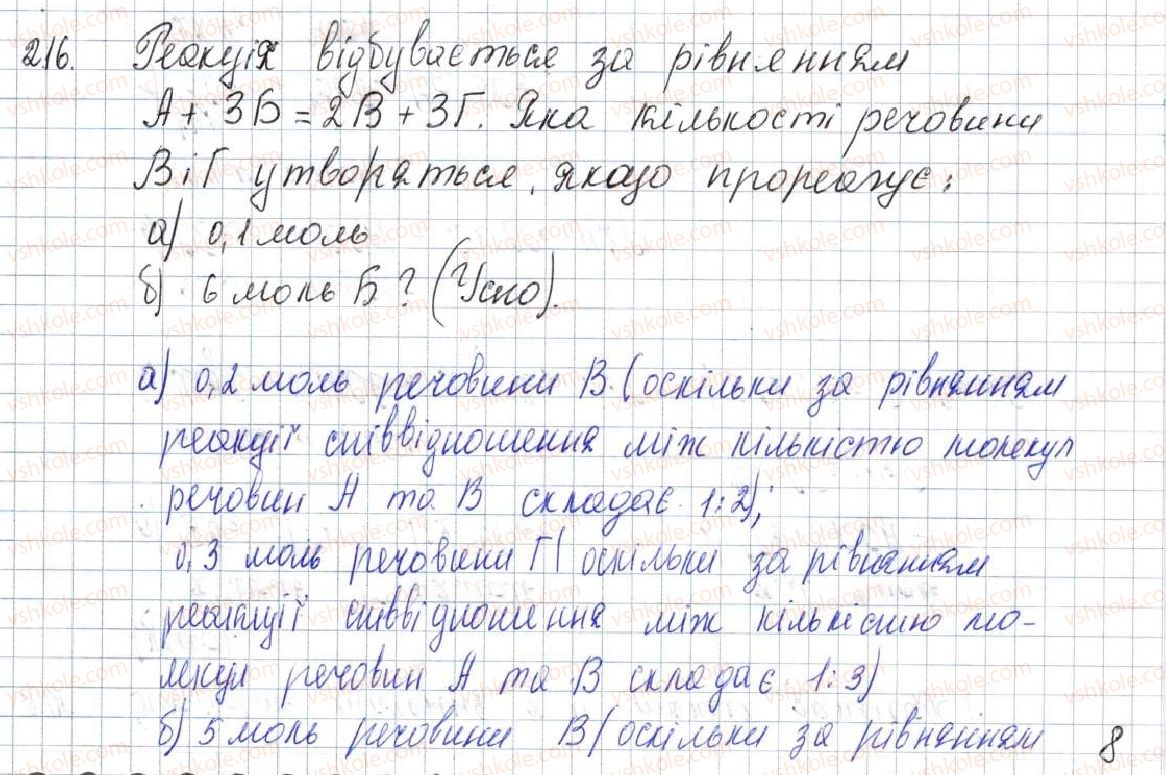 216. Реакція відбувається за рівнянням
А + 3Б = 2В + 3Г. Яка кількості речовини
В і Г утворяться, якщо прореагує:
а) 0,1 моль
б) 6 моль Б? (Усно).
а) 0,2 моль речовини В (оскільки за рівнянням
реакції співвідношення між кількістю молекул
речовин А та В складає 1:2);
0,3 моль речовини Г (оскільки за рівнянням
реакції співвідношення між кількістю мо-
лекул речовин А та В складає 1:3)
б) 5 моль речовини В (оскільки за рівнянням
8